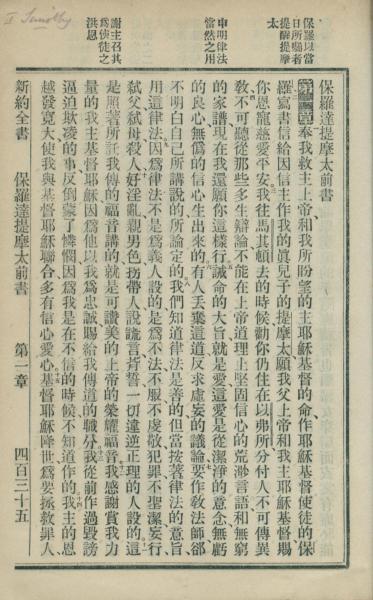 I Timothy
保羅以當
日所囑者
提醒提摩
太
申明律法
當然之用
謝主召其
爲使徒之
洪恩
保羅達提摩太前書
第一章奉我救主上帝和我所盼望的主耶穌基督的命作耶穌基督使徒的保
羅寫書信給因信主作我的眞兒子的提摩太願我父上帝和我主耶穌基督賜
你恩寵慈愛平安我往馬其頓去的時候勸你仍住在以弗所分付人不可傳異
教不可聽從那些多生辯論不能在上帝道理上堅固信心的荒渺言語和無窮
的家譜現在我還願你這樣行誡命的大旨就是愛這愛是從潔淨的意念無虧
的良心無僞的信心生出來的有人丟棄這道反求虛妄的議論要作敎法師郤
不明白自己所講說的所論定的我們知道律法是善的但當按著律法的意旨
用這律法因爲律法不是爲義人設的是爲不法不服不虔敬犯罪不聖潔妄行
弑父弑母殺人好淫亂親男色拐帶人說謊言背誓一切違逆正理的人設的這
是照著所託我傳的福音講的就是可讚美的上帝的榮耀福音我感謝賞我力
量的我主基督耶穌因爲他以我爲忠誠賜給我傳道的職分我從前作過毀謗
逼迫欺凌的事反倒蒙了憐憫因爲我是在不信的時候不知道作的我主的恩
越發寬大使我與基督耶穌聯合多有信心愛心基督耶穌降世爲要拯救罪人
新約全書 保羅達提摩太前書 第一章 四百三十五